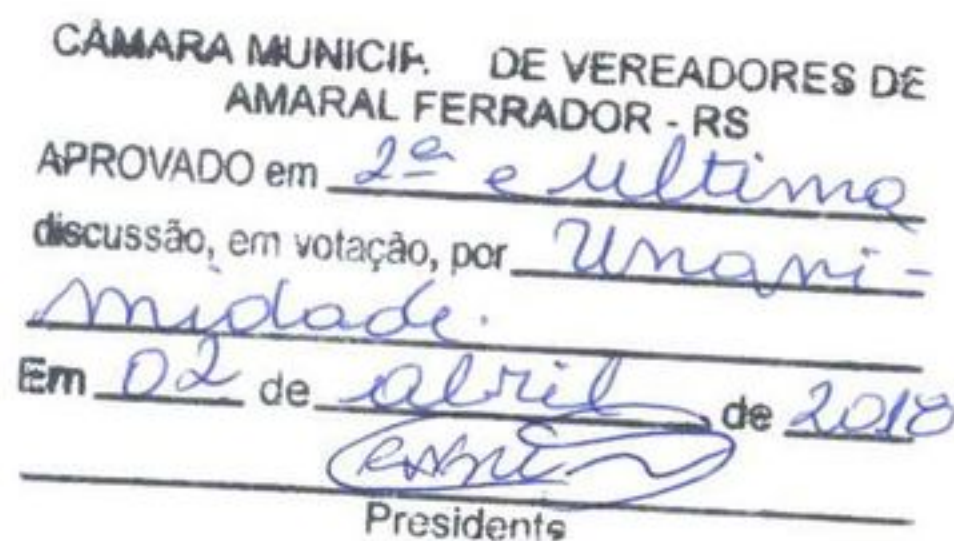 CÂMARA MUNICIP. DE VEREADORES DE
AMARAL FERRADOR - RS
APROVADO em 2ª e ultima
discussão, em votação, por Unani-
midade.
Em 02 de abril de 2018
Presidente